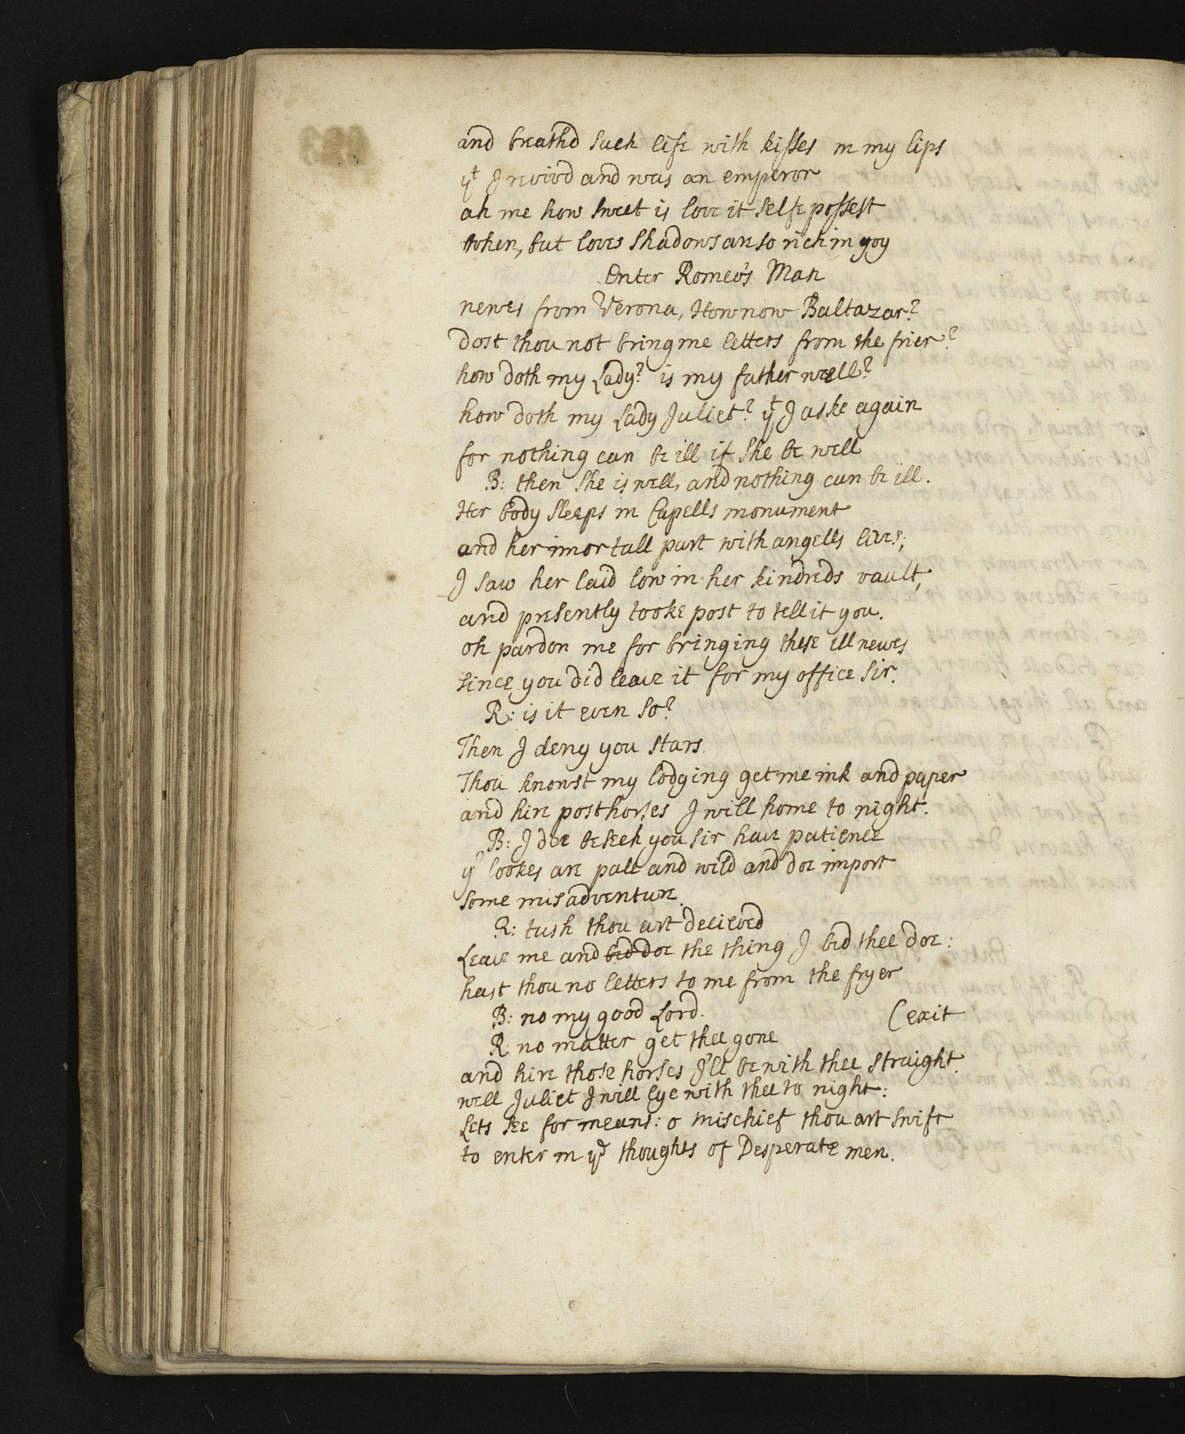 and breathd such life with kisses in my lips
yt I revivd and was an emperor
ah me how sweet is love it selfe possest
when, but loves shadows are so rich in yoy
Enter Romeo's Man
newes from Verona, How now Baltazar?
Dost thou not bring me letters from the frier?
how doth my Lady? is my father well?
how doth my Lady Juliet? yt I aske again
for nothing can be ill if she be well
B: then she is well, and nothing can be ill.
Her body sleeps in Capells monument
and her imortall part with angells lives;
I saw her laid low in her kindreds vault,
and presently tooke post to tell it you.
oh pardon me for bringing these ill newes
since you did leave it for my office sir.
R: is it even so?
Then I deny you stars
Thou knowst my lodging get me ink and paper
and hire posthorses I will home to night.
B: I doe beseeh you sir have patience
yr lookes are pale and wild and doe import
some misadventure.
R: tush thou art decieved
Leave me and bid doe the thing I bid thee doe:
hast thou no letters to me from the fryer
B: no my good Lord. (exit
R: no matter get thee gone
and hire those horses I'll be with thee straight.
well Juliet I will lye with thee to night:
Lets see for means: o mischief thou art swift
to enter in ye thoughts of Desperate men.